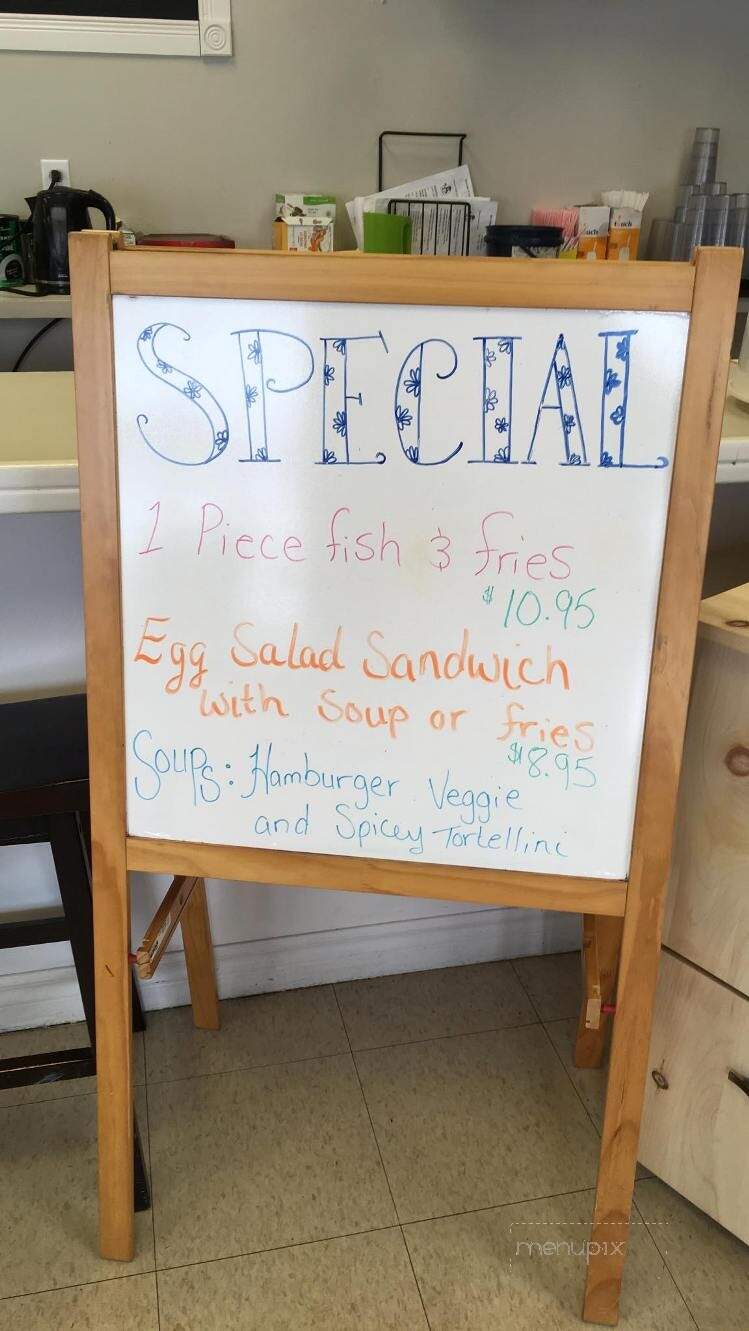 SPECIAL
1 Piece fish & fries
$10.95
Egg Salad Sandwich
with Soup or fries
$8.95
Soups: Hamburger Veggie
and Spicey Tortellini
menupix